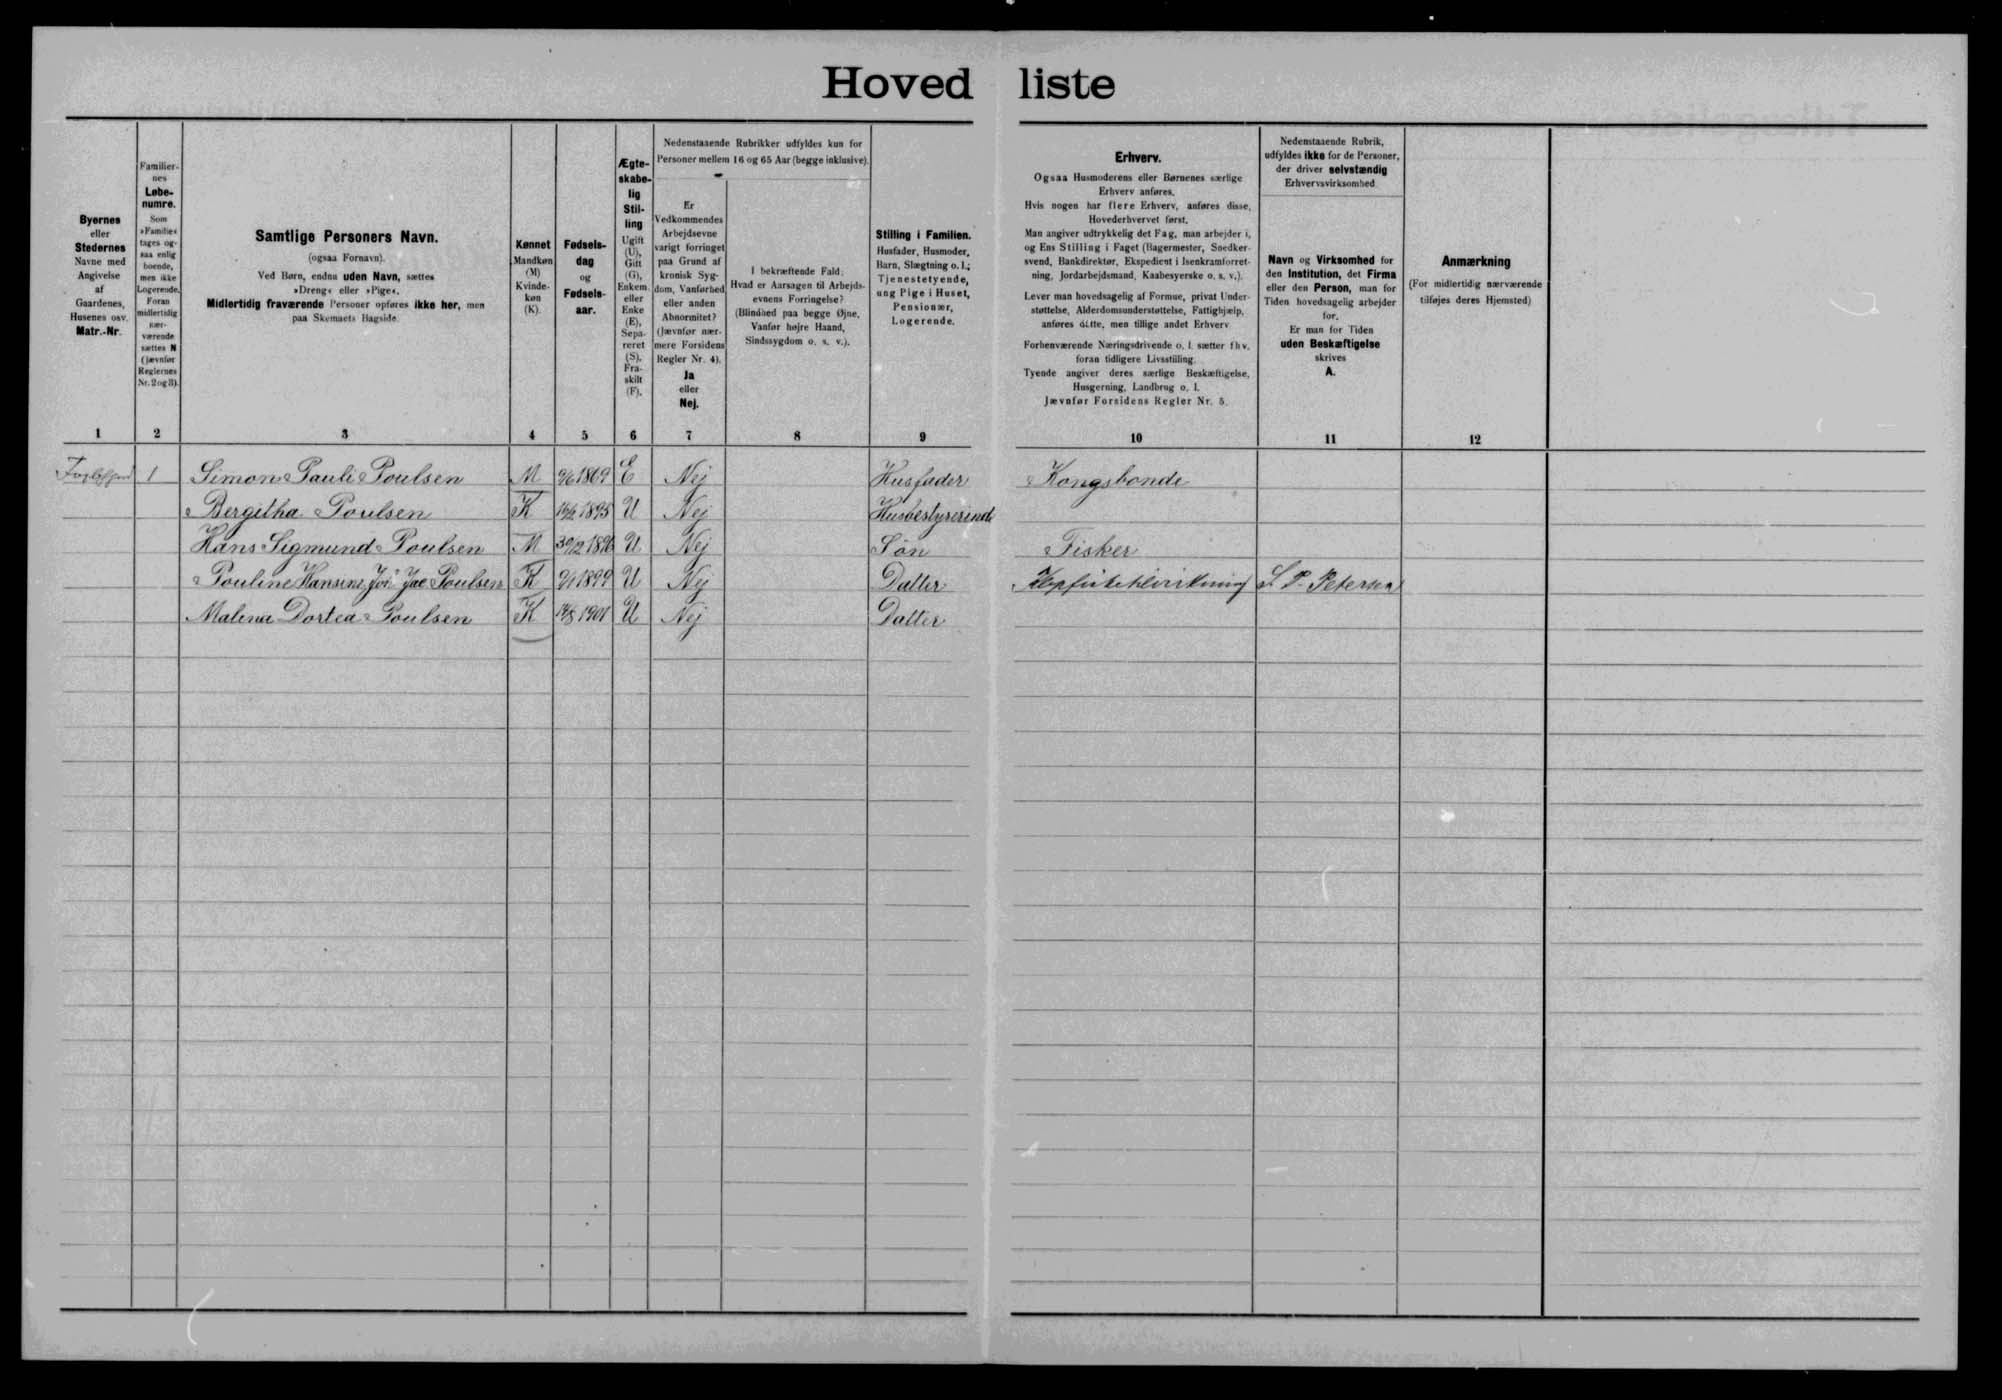 Hovedliste
Byernes
eller
Stedernes
Navne med
Angivelse
af
Gaardenes,
Husenes osv.
Matr.-Nr.
Familier-
nes
Løbe-
numre.
Som
»Familie«
tages og-
saa enlig
boende,
men ikke
Logerende.
Foran
midlertidig
nær-
værende
sættes N
(jævnfør
Reglernes
Nr. 2 og 3).
Samtlige Personers Navn.
(ogsaa Fornavn).
Ved Børn, endnu uden Navn, sættes
»Dreng« eller »Pige«.
Midlertidig fraværende Personer opføres ikke her, men
paa Skemaets Bagside.
Kønnet
Mandkøn
(M)
Kvinde-
køn
(K).
Fødsels-
dag
og
Fødsels-
aar.
Ægte-
skabe-
lig
Stil-
ling
Ugift
(U),
Gift
(G),
Enkem.
eller
Enke
(E),
Sepa-
reret
(S),
Fra-
skilt
(F).
Nedenstaaende Rubrikker udfyldes kun for
Personer mellem 16 og 65 Aar (begge inklusive).
Er
Vedkommendes
Arbejdsevne
varigt forringet
paa Grund af
kronisk Syg-
dom, Vanførhed
eller anden
Abnormitet?
(Jævnfør nær-
mere Forsidens
Regler Nr. 4).
Ja
eller
Nej.
I bekræftende Fald;
Hvad er Aarsagen til Arbejds-
evnens Forringelse?
(Blindhed paa begge Øjne,
Vanfør højre Haand,
Sindssygdom o. s. v.).
Stilling i Familien.
Husfader, Husmoder,
Barn, Slægtning o. l.;
Tjenestetyende,
ung Pige i Huset,
Pensionær,
Logerende.
Erhverv.
Ogsaa Husmoderens eller Børnenes særlige
Erhverv anføres.
Hvis nogen har flere Erhverv, anføres disse,
Hovederhvervet først.
Man angiver udtrykkelig det Fag, man arbejder i,
og Ens Stilling i Faget (Bagermester, Snedker-
svend, Bankdirektør, Ekspedient i Isenkramforret-
ning, Jordarbejdsmand, Kaabesyerske o. s. v.).
Lever man hovedsagelig af Formue, privat Under-
støttelse, Alderdomsunderstøttelse, Fattighjælp,
anføres dette, men tillige andet Erhverv
Forhenværende Næringsdrivende o. l. sætter fhv.
foran tidligere Livsstilling.
Tyende angiver deres særlige Beskæftigelse,
Husgerning, Landbrug o. l.
Jævnfør Forsidens Regler Nr. 5.
Nedenstaaende Rubrik,
udfyldes ikke for de Personer,
der driver selvstændig
Erhvervsvirksomhed
Navn og Virksomhed for
den Institution, det Firma
eller den Person, man for
Tiden hovedsagelig arbejder
for.
Er man for Tiden
uden Beskæftigelse
skrives
A.
Anmærkning
(For midlertidig nærværende
tilføjes deres Hjemsted)
1 2 3 4 5 6 7 8 9 10 11 12
1 Simon Pauli Poulsen M 1869 E Nej Husfader Kongsbonde
Bergitha Poulsen K 1895 U Nej Husbestyrerinde
Hans Sigmund Poulsen M 30/12 1896 U Nej Søn Fisker
Pouline Hansine Jac Poulsen K 1899 U Nej Datter Petersen
Malena Dortea Poulsen K 1901 U Nej Datter